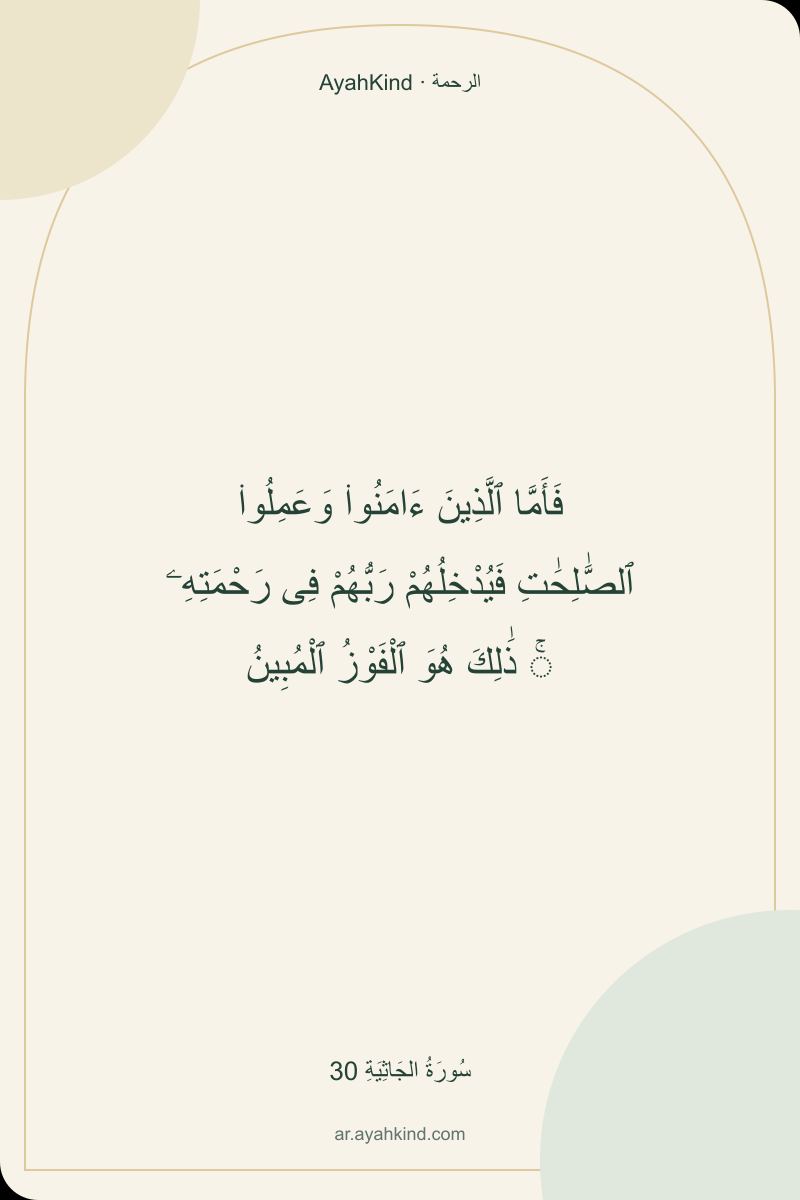 AyahKind · الرحمة
فَأَمَّا ٱلَّذِينَ ءَامَنُوا۟ وَعَمِلُوا۟
ٱلصَّٰلِحَٰتِ فَيُدْخِلُهُمْ رَبُّهُمْ فِى رَحْمَتِهِۦ
ۚ ذَٰلِكَ هُوَ ٱلْفَوْزُ ٱلْمُبِينُ
سُورَةُ الجَاثِيَةِ 30
ar.ayahkind.com